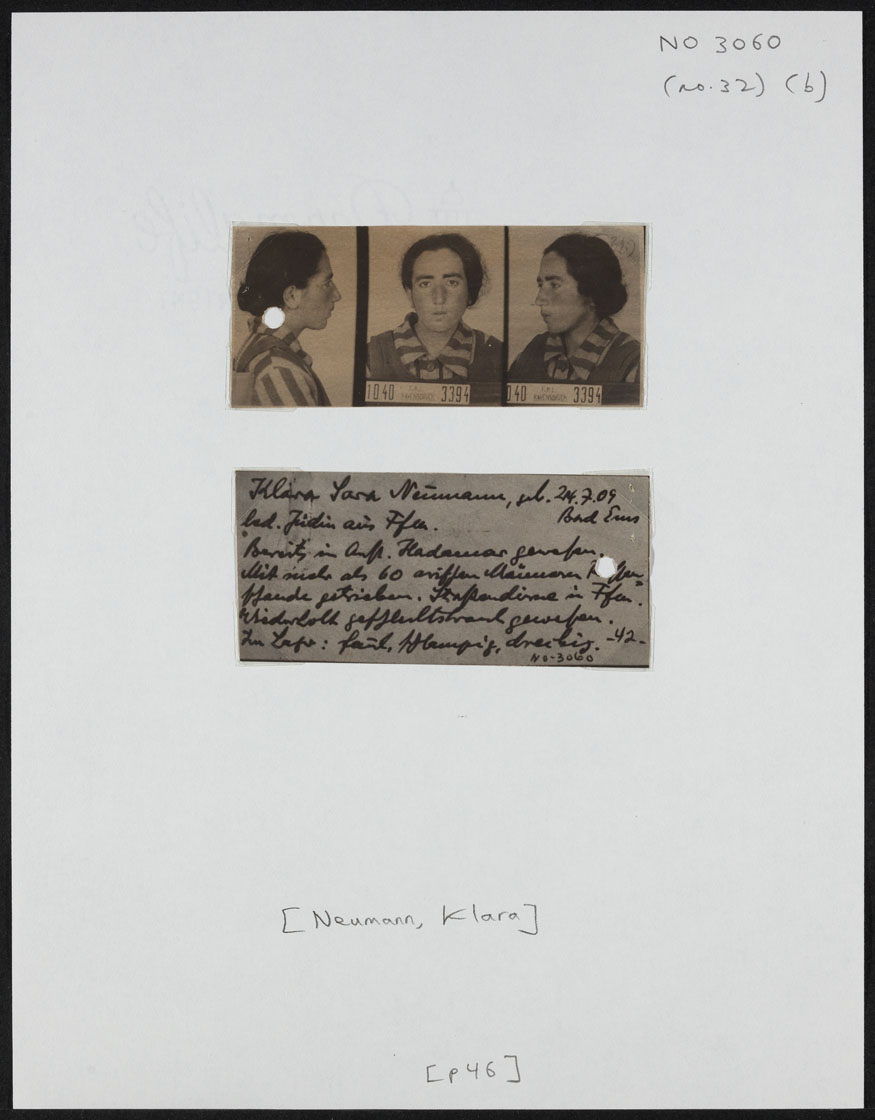 NO 3060
(no. 32) (b)
1040 3394
040 3394
Klara Sara Neumann, geb. 24.7.09
led. Jüdin aus Ffm. Bad Ems
Bereits in Anst. Hadamar gewesen.
Mit mehr als 60 arischen Männern
schande getrieben. Straßendirne in Ffm.
Wiederholt geschlechtskrank gewesen.
Im Lager: faul, schlampig, dreckig. -42-
NO-3060
[Neumann, Klara]
[p 46]